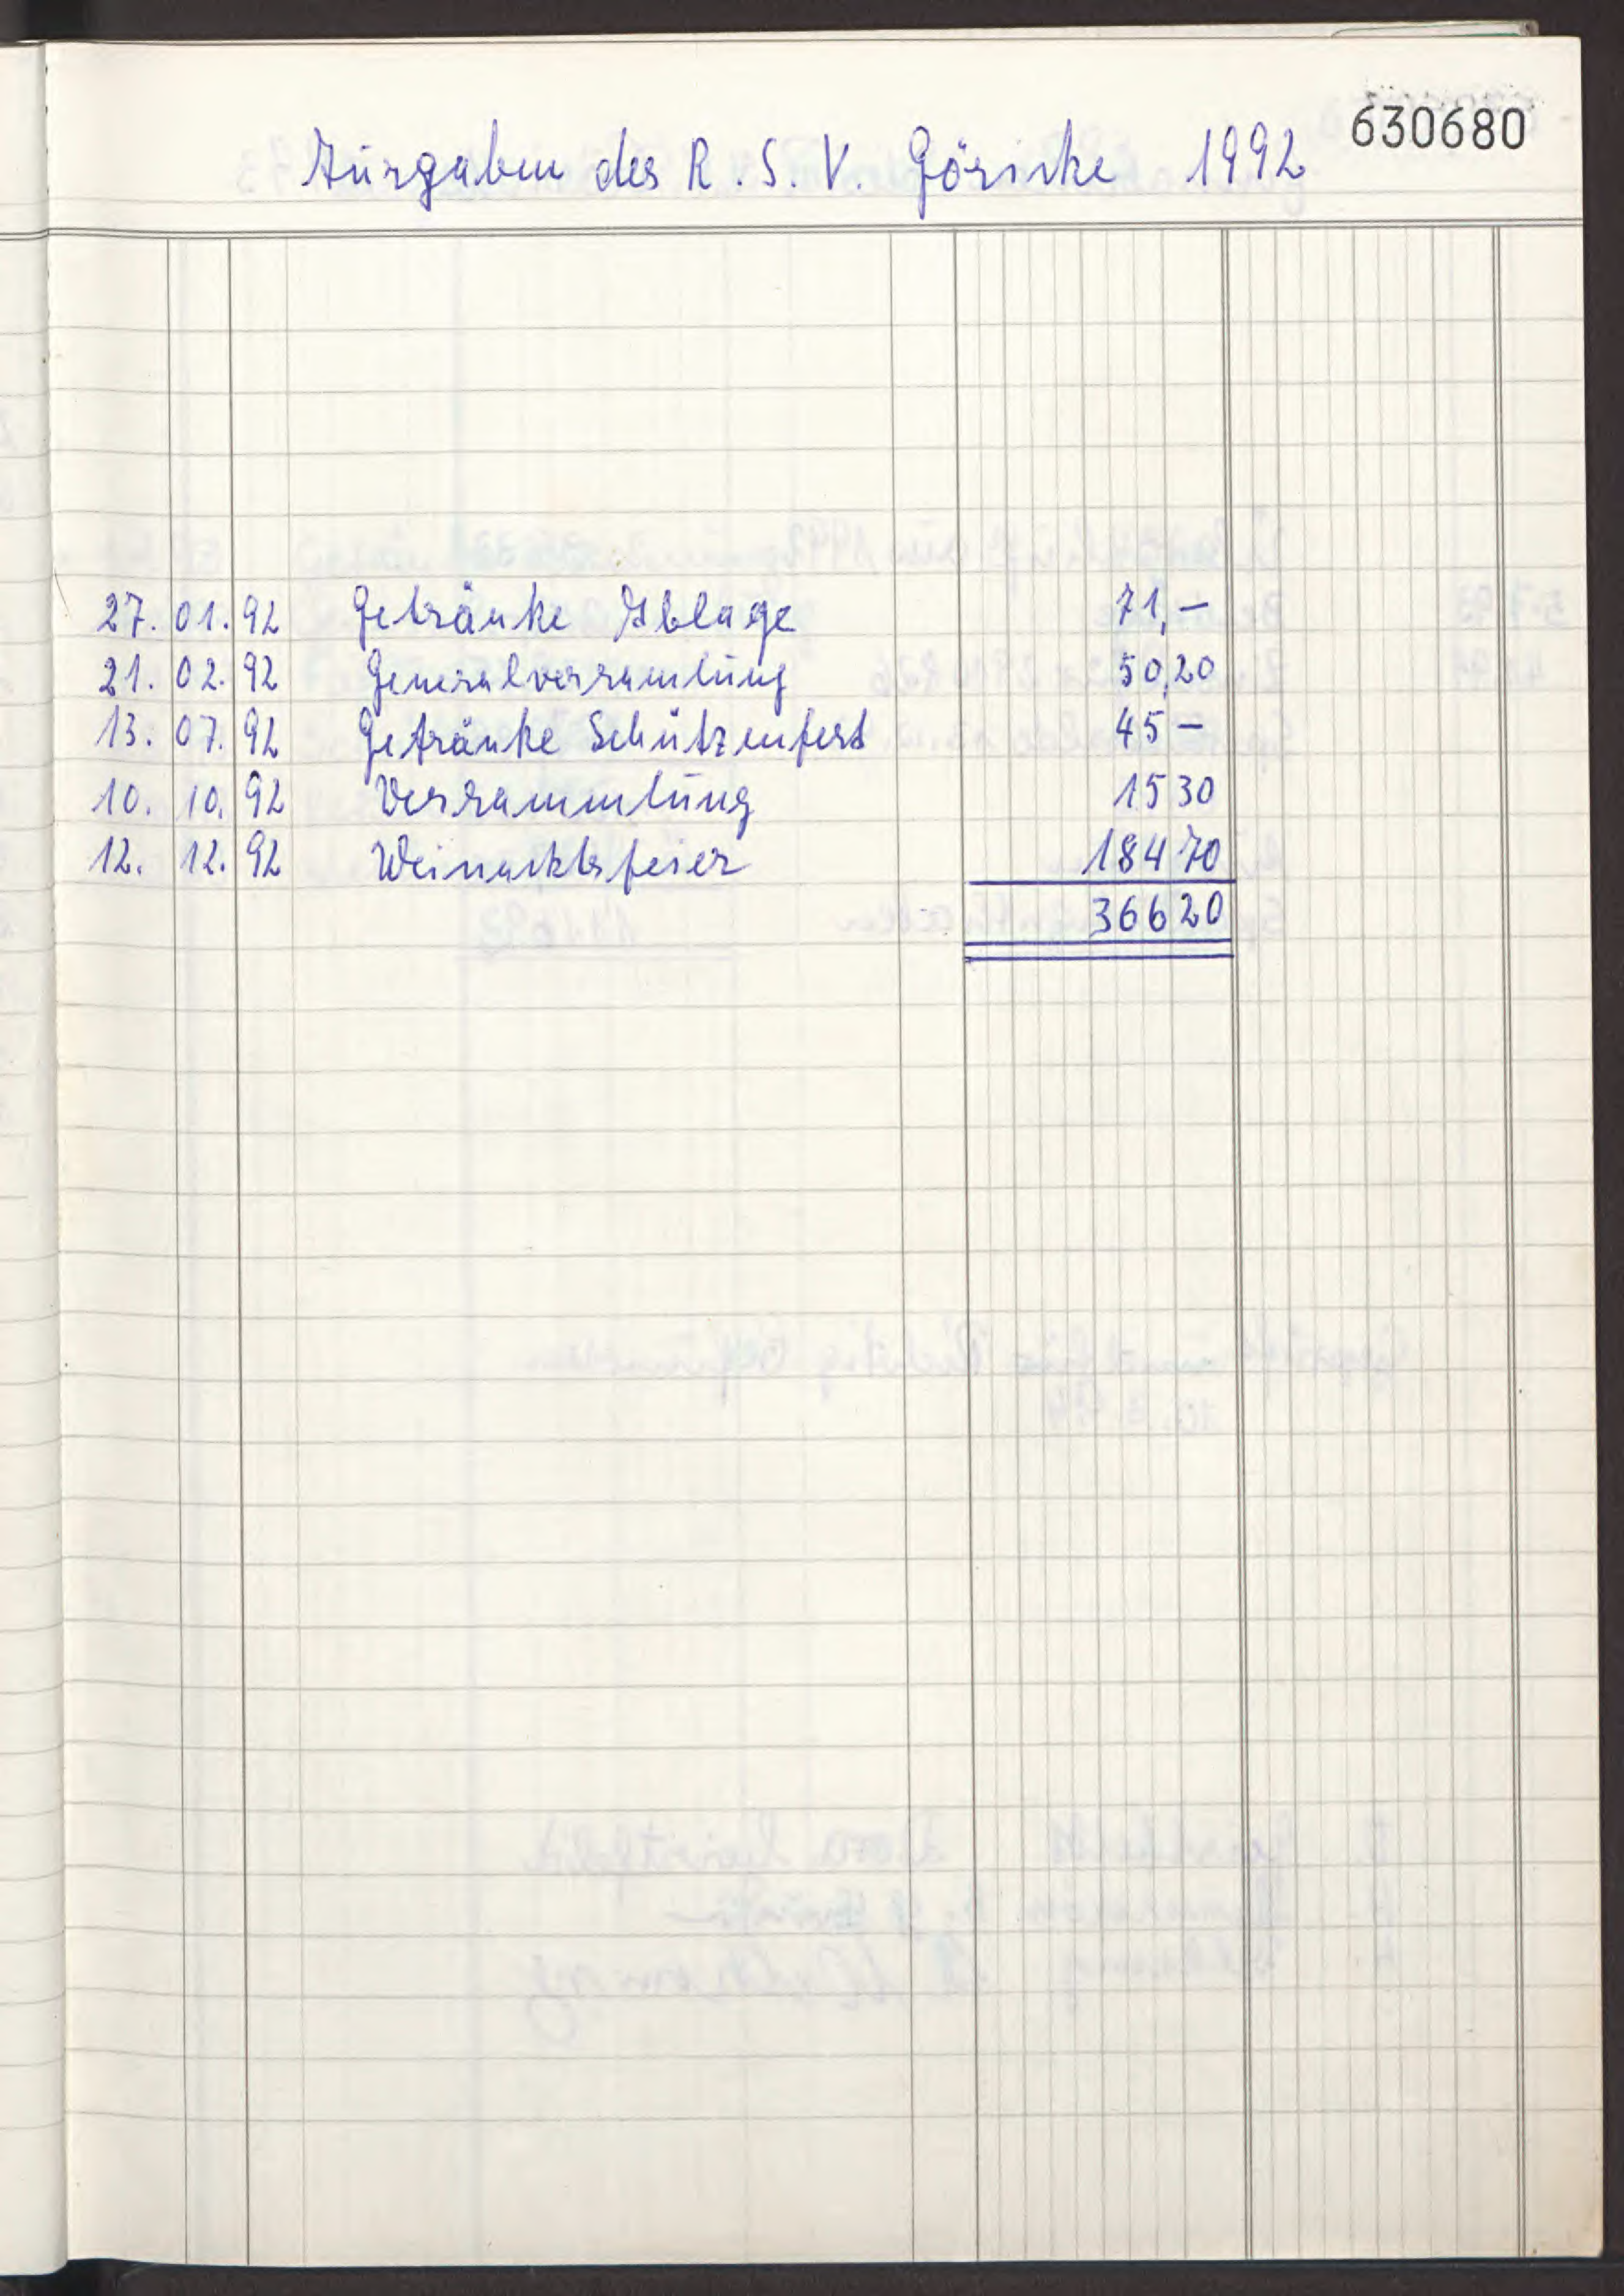 630680
Ausgaben des R. S. V. Göricke 1992
27. 01. 92 Getränke Ablage 71,-
21. 02. 92 Generalversamlung 50,20
13. 07. 92 Getränke Schützenfest 45 -
10. 10. 92 Versammlung 15 30
12. 12. 92 Weinachtsfeier 184 70
366 20